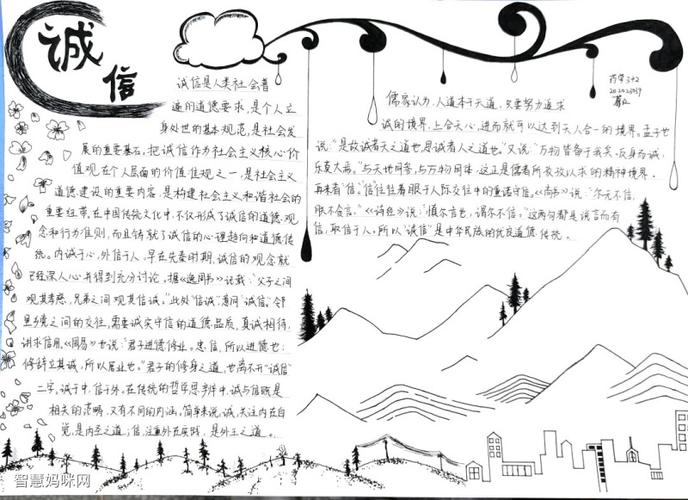 诚信
诚信是人类社会普
遍的道德要求,是个人立
身处世的基本规范,是社会发
展的重要基石。把诚信作为社会主义核心价
值观在个人层面的价值准观之一,是社会主义
道德建设的重要内容,是构建社会主义和谐社会的
重要纽带。在中国传统文化中,不仅形成了诚信的道德观
念和行为准则,而且铸就了诚信的心理趋向和道德传
统。内诚于心,外信于人,早在先秦时期,诚信的观念就
已经深人心并得到充分讨论。据《逸周书》记载:“父子之间
观其孝慈,兄弟之间观其信诚。”此处“信诚”意同“诚信。邻
里乡党之间的交往,需要诚实守信的道德品质,真诚相待,
讲求信用。《周易》也说:“君子进德修业。忠信,所以进德也;
修辞立其诚,所以居业也。”君子的修身之道,也离不开“诚信”
二字,诚于中,信于外。在传统的哲学思考中,诚与信既是
相关的范畴,又有不同的内涵。简单来说,诚,关注内在自
觉,是内圣之道;信,注重外在实践,是外王之道。
药学3+2
儒家认为,人道本于天道,只要努力追求
诚的境界,上合天心,进而就可以达到天人合一的境界。孟子也
说:“是故诚者天之道也思诚者人之道也。”又说“万物皆备于我矣,反身而诚,
乐莫大焉。”与天地同参,与万物同体,这正是儒者所孜孜以求的精神境界。
再来看“信”,信往往着眼于人际交往中的重诺守信。《尚书》说:“尔无不信,
朕不食言。”《诗经》说:“慎尔言也,谓尔不信。”这两句都是说言而有
信,取信于人。所以“诚信”是中华民族的优良道德传统。
智慧妈咪网